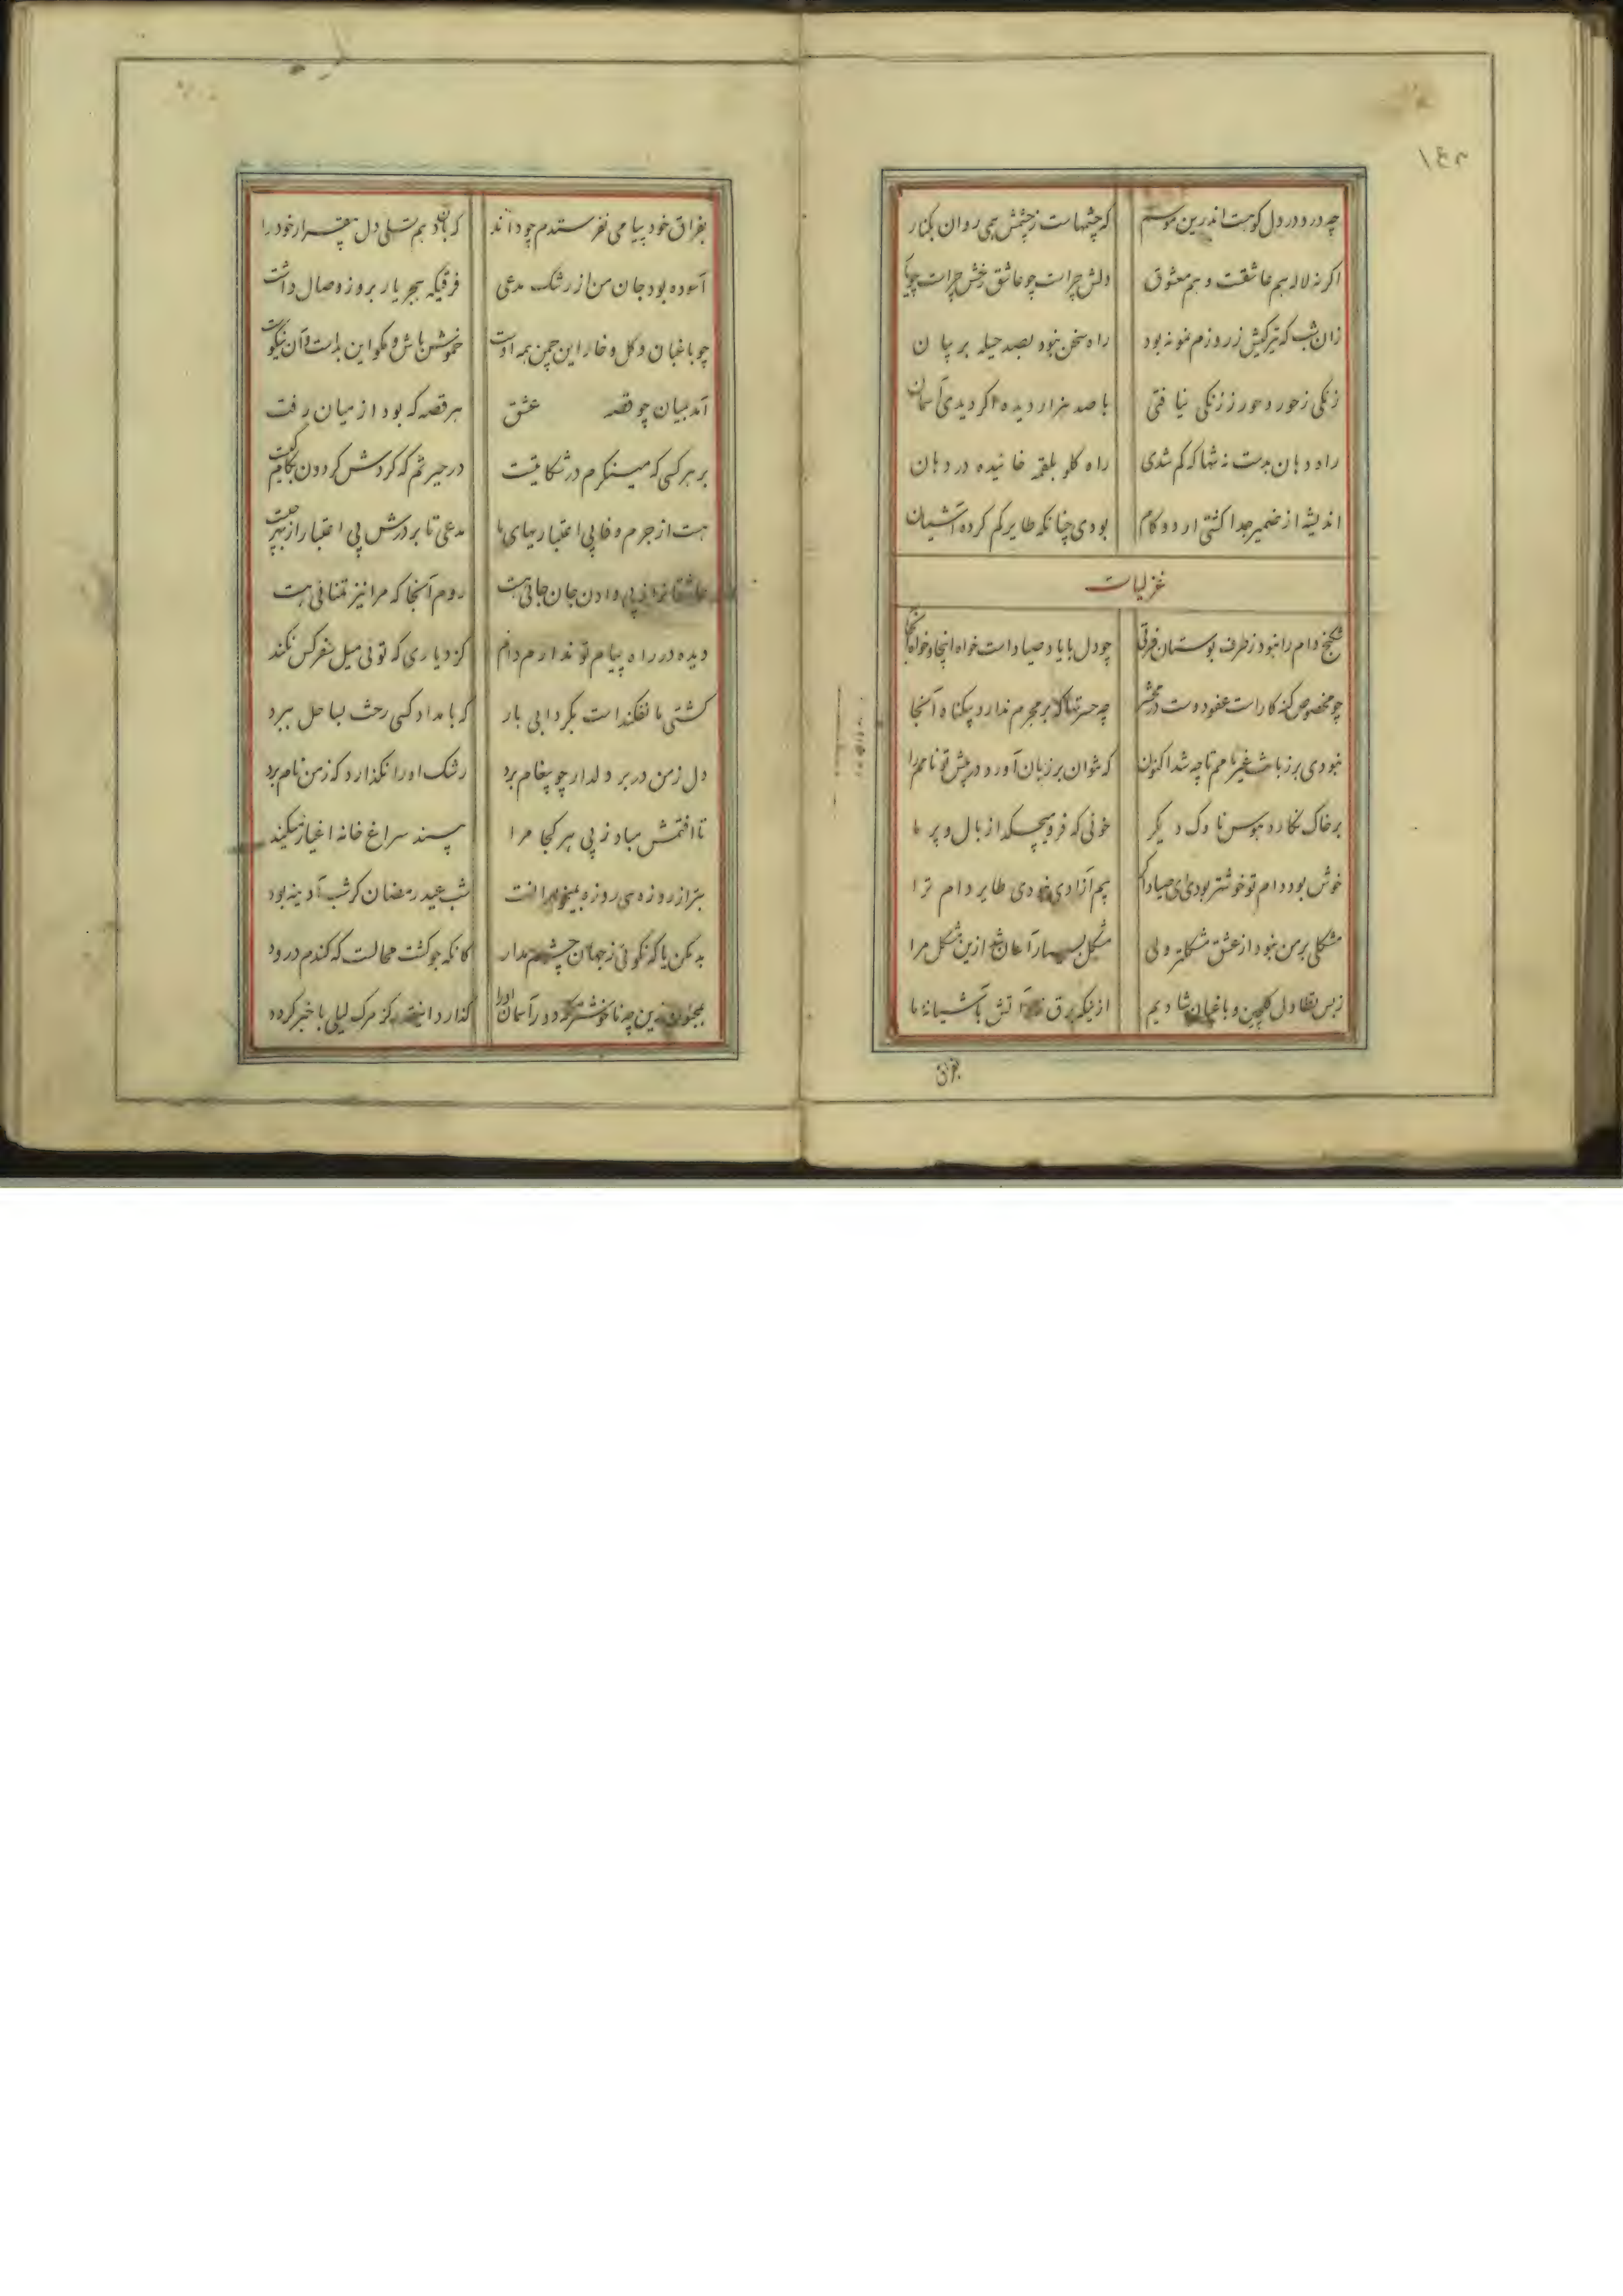 چه درد در دل کوهست اندرین موسم که چشمهاست ز چشمش همی روان بکنار
اگر نه لاله هم عاشقست و هم معشوق دلش چراست چو عاشق رخش چراست چو یار
زان شب که تیرگیش ز روزم نمونه بود راه سخن نبود بصد حیله بر بیان
زنگی ز حور و حور ز زنگی نیافتی با صد هزار دیده اگر دیدی آسمان
راه دهان بدست نه تنها که گم شدی راه گلو بلقمه خائیده در دهان
اندیشه از ضمیر جدا گشتی ار دو گام بودی چنانکه طایر گم کرده آشیان
غزلیات
شکنج دام را نبود ز طرف بوستان فرقی چو دل با یاد صیاد است خواه اینجا و خواه آنجا
چو مخصوص گنه کار است عفو دوست در محشر چه حسرتها که بر مجرم ندارد بیگناه آنجا
نبودی بر زبانت غیر نامم تا چه شد اکنون که نتوان بر زبان آورد در پیش تو نامم را
بر خاک نگارد هوس ناوک دیگر خونی که فرو میچکد از بال و پر ما
خوش بود دام تو خوشتر بودی ای صیاد اگر بیم آزادی نبودی طایر دام ترا
مشکلی بر من نبود از عشق مشکلتر ولی مشکل بسیار آسان شد ازین مشکل مرا
ز بس تطاول گلچین و باغبان شادیم از نیکه برق زد آتش بآشیانه ما
بفراق
بفراق خود پیامی نفرستدم چو داند که بآن دهم تسلی دل بیقرار خود را
آسوده بود جان من از رشک مدعی فرقیکه هجر یار بروز وصال داشت
چو باغبان و گل و خار این چمن همه اوست خموش باش و مگو این بد است و آن نیکوست
آمد بمیان چو قصه عشق هر قصه که بود از میان رفت
بر هر کسی که مینگرم در شکایتست در حیرتم که گردش گردون بکام کیست
هست از جرم وفا بی اعتباریهای ما مدعی تا بر درش بی اعتبار از بهر چیست
عاشقانرا پی دادن جان جائی هست روم آنجا که مرا نیز تمنائی هست
دیده در راه پیام تو ندارم دانم کز دیاری که توئی میل سفر کس نکند
کشتی ما نفکند است بگردابی بار که بامداد کسی رخت بساحل ببرد
دل ز من در بر دلدار چو پیغام برد رشک او را نگذارد که ز من نام برد
تا افتمش مباد ز پی هر کجا مرا بیند سراغ خانه اغیار میکند
بتر از روزه سی روزه بمیخواران شب عید رمضان کز شب آدینه بود
بد مکن یا که نکوئی ز جهان چشم مدار کانکه جو کشت محالست که گندم درود
بمجنون زین چه ناخوشتر که دور آسمان او را گذارد زنده کز مرگ لیلی با خبر گردد